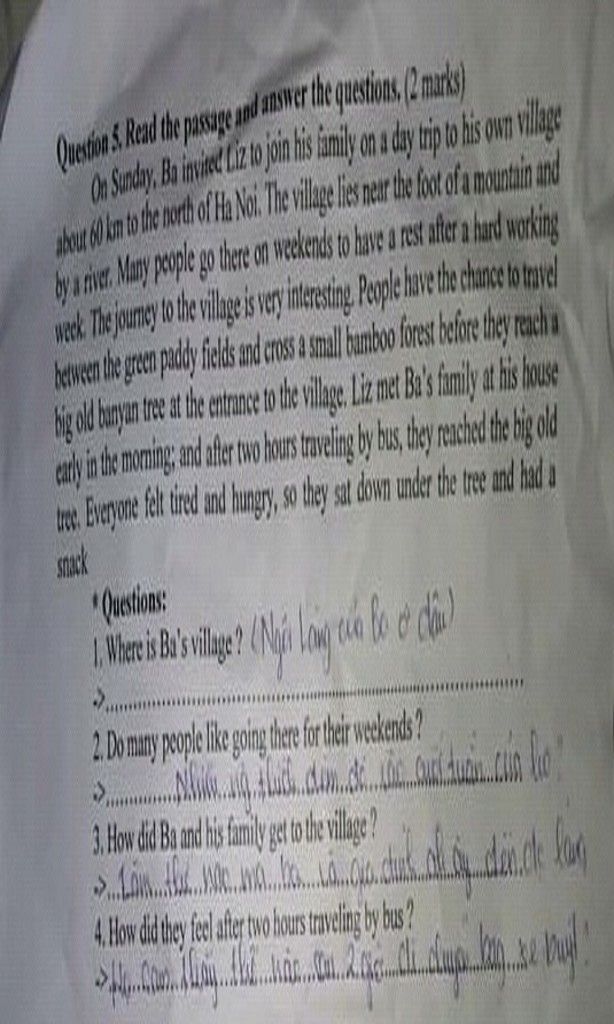 Question 5. Read the passage and answer the questions. (2 marks)
On Sunday, Ba invited Liz to join his family on a day trip to his own village
about 60 km to the north of Ha Noi. The village lies near the foot of a mountain and
by a river. Many people go there on weekends to have a rest after a hard working
week. The journey to the village is very interesting. People have the chance to travel
between the green paddy fields and cross a small bamboo forest before they reach a
big old banyan tree at the entrance to the village. Liz met Ba's family at his house
early in the morning; and after two hours traveling by bus, they reached the big old
tree. Everyone felt tired and hungry, so they sat down under the tree and had a
snack
* Questions:
1. Where is Ba's village? (Ngôi làng của Ba ở đâu)
->
2. Do many people like going there for their weekends?
-> Nhiều ng thích đến đó cuối tuần của họ
3. How did Ba and his family get to the village?
-> Làm thế nào mà ba và gia đình đến làng
4. How did they feel after two hours traveling by bus?
-> Họ cảm thấy thế nào sau 2 giờ di chuyển bằng xe buýt